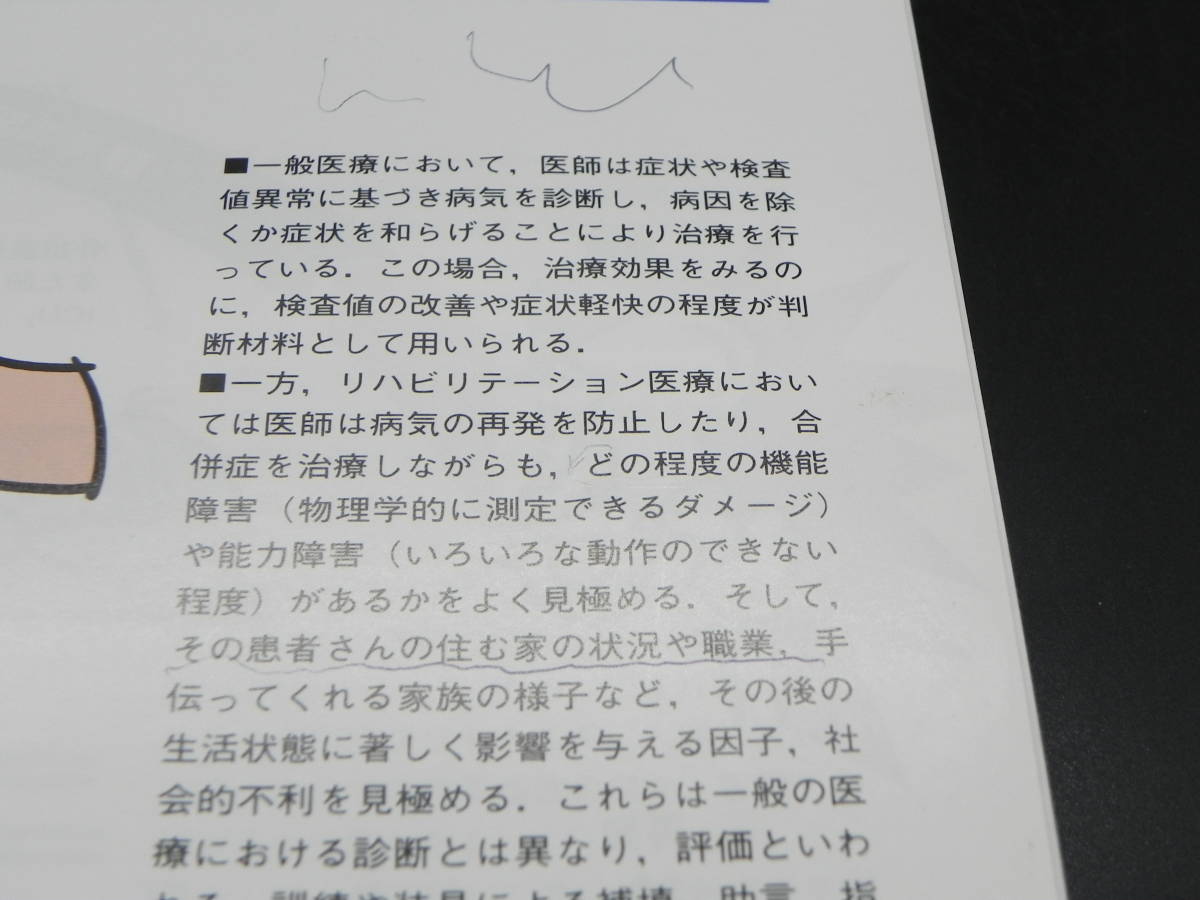 ■一般医療において，医師は症状や検査
値異常に基づき病気を診断し，病因を除
くか症状を和らげることにより治療を行
っている．この場合，治療効果をみるの
に，検査値の改善や症状軽快の程度が判
断材料として用いられる．
■一方，リハビリテーション医療におい
ては医師は病気の再発を防止したり，合
併症を治療しながらも，どの程度の機能
障害（物理学的に測定できるダメージ）
や能力障害（いろいろな動作のできない
程度）があるかをよく見極める．そして，
その患者さんの住む家の状況や職業，手
伝ってくれる家族の様子など，その後の
生活状態に著しく影響を与える因子，社
会的不利を見極める．これらは一般の医
療における診断とは異なり，評価といわ
れる．訓練や装具による補填，助言，指